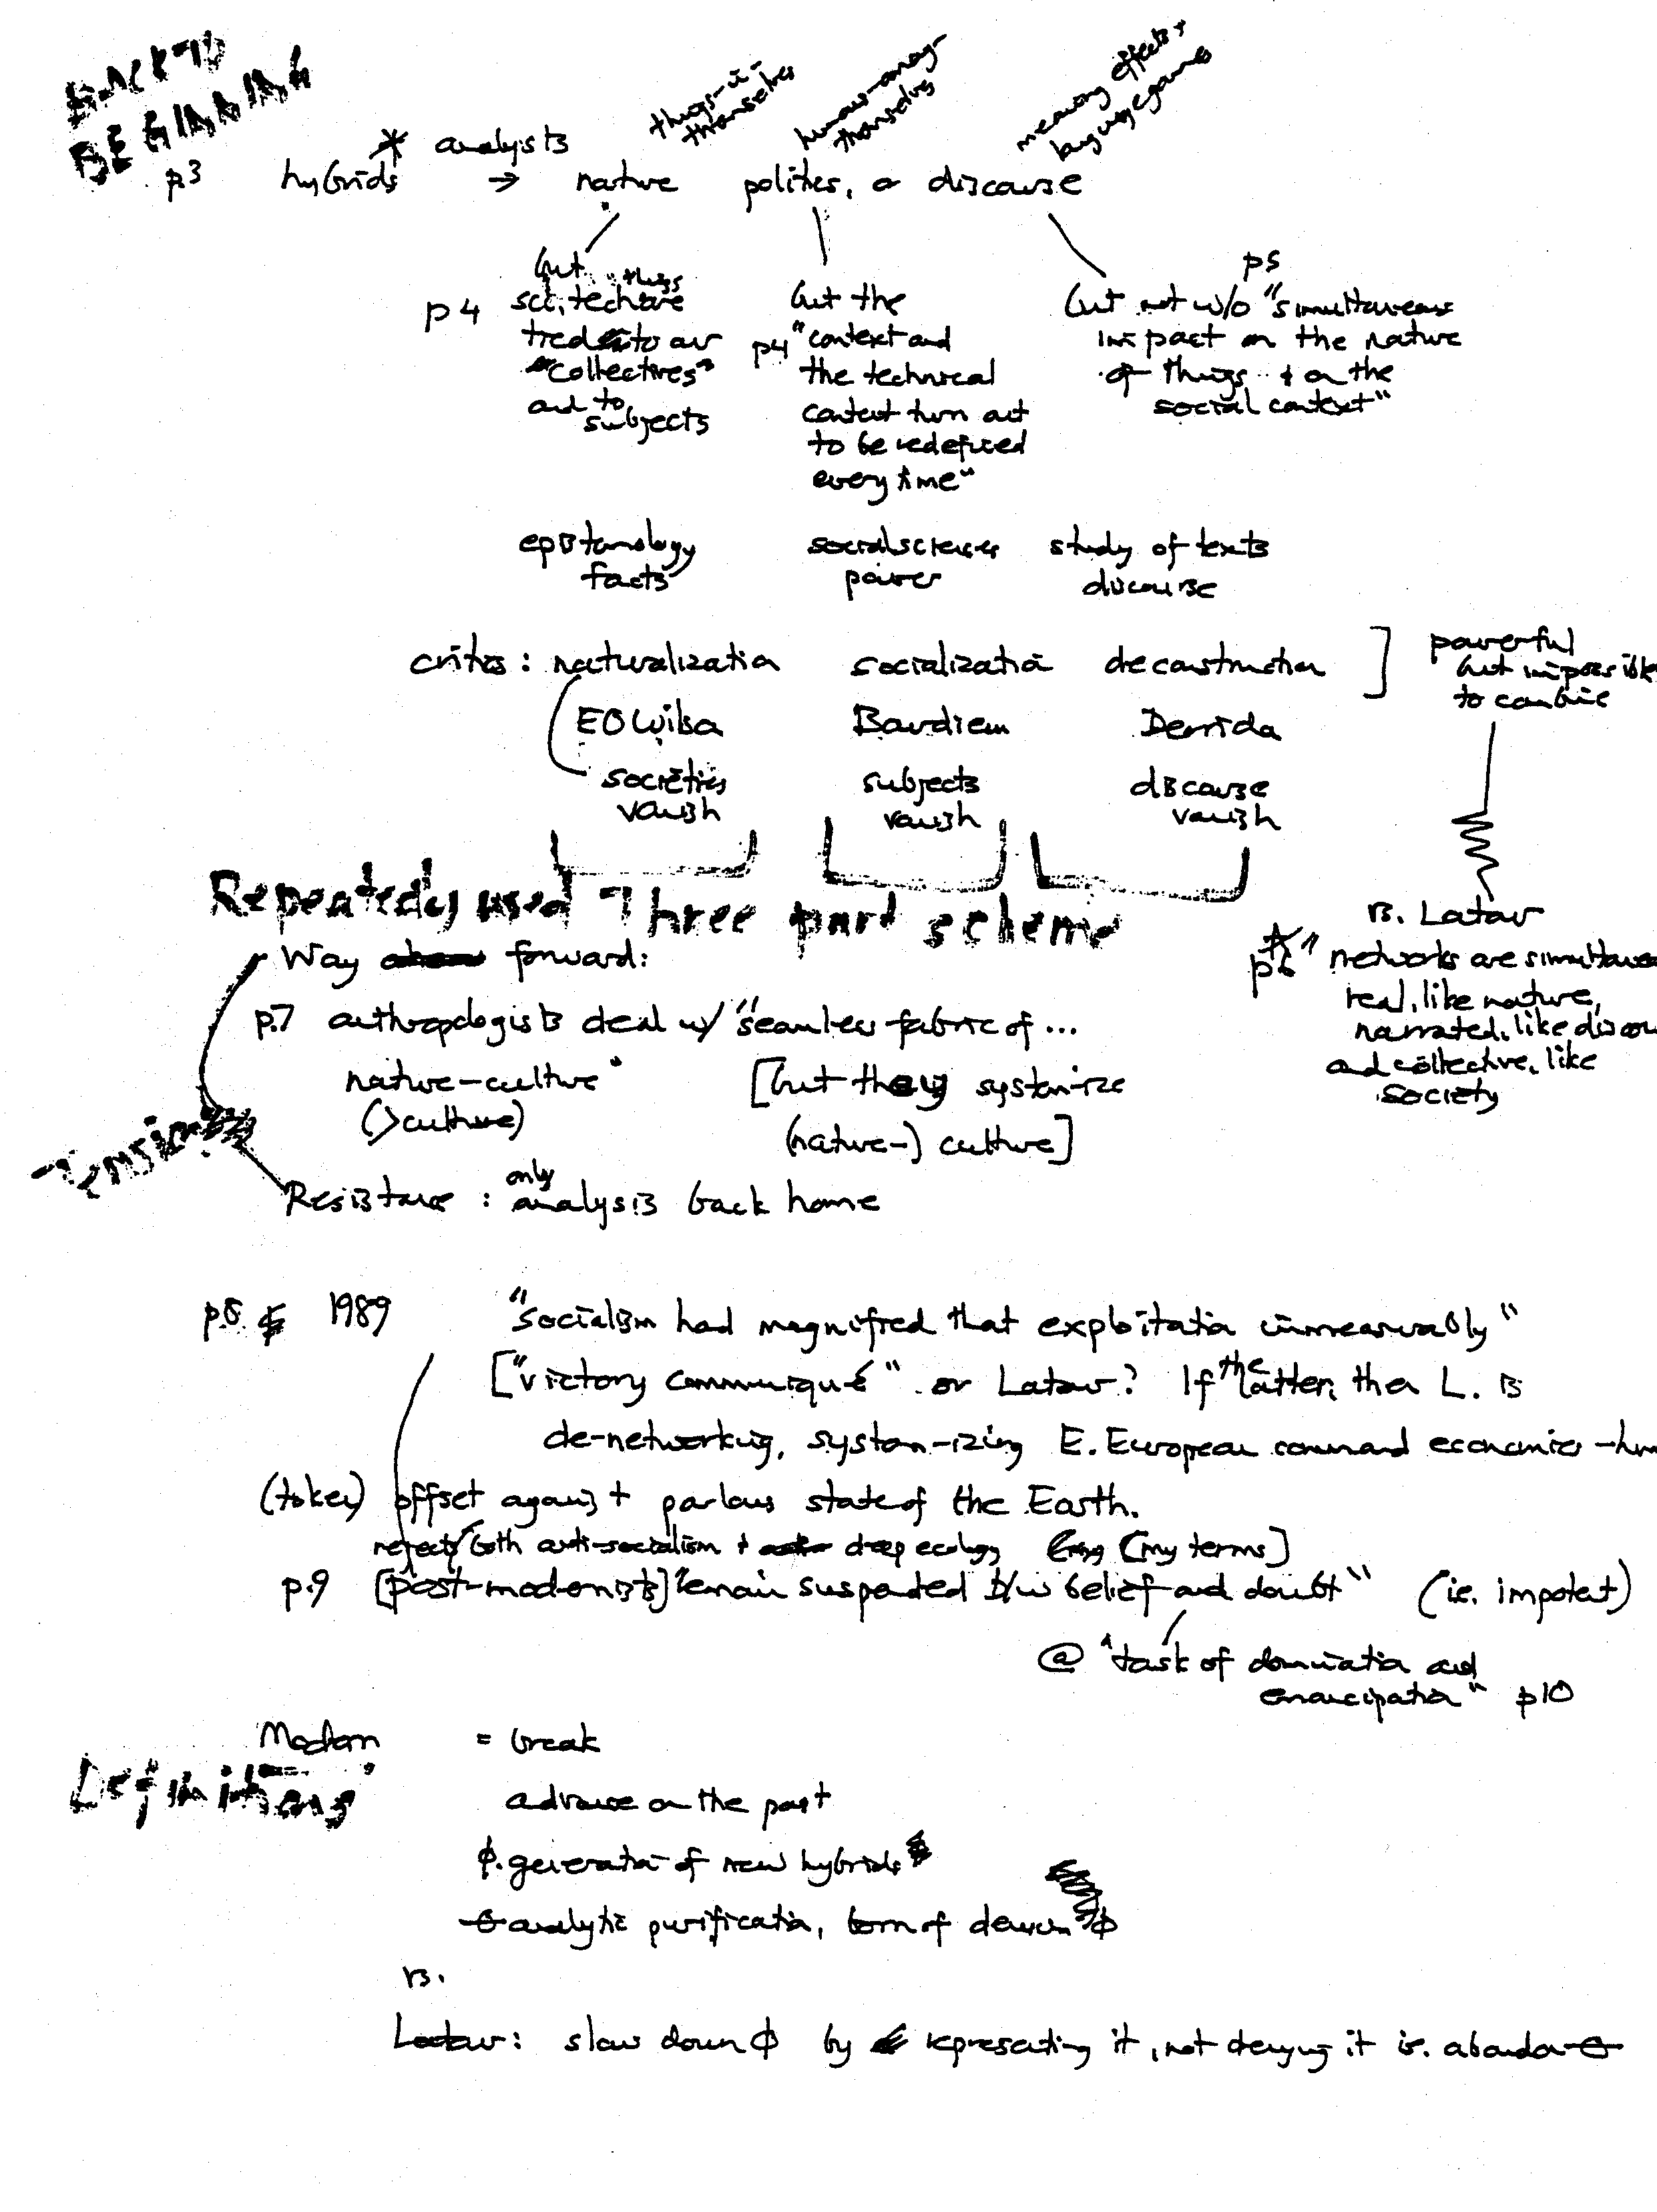 BACK TO
BEGINNING
things-in-
themselves
humans-among-
themselves
meaning effects +
language games
p.3 hybrids * analysts → nature politics, or discourse
p4
but things
sci, tech are
tied to our
"collectives"
and to
subjects
p4
but the
"context and
the technical
content turn out
to be redefined
every time"
p5
but not w/o "simultaneous
impact on the nature
of things .. + on the
social context"
epistemology
facts
social sciences
power
study of texts
discourse
critics: naturalization socialization deconstruction ]
powerful
but impossible
to combine
EO Wilson Bourdieu Derrida
societies
vanish
subjects
vanish
discourse
vanish
Repeatedly used Three part scheme
B. Latour
* p6 "networks are simultaneo
real, like nature,
narrated, like discou
and collective, like
society
Way forward:
p.7 anthropologists deal w/ "seamless fabric of ...
nature-culture"
(>culture)
[but they system-ize
(nature-) culture]
Tension
Resistance: only analysis back home
p.8 1989 "socialism had magnified that exploitation immeasurably"
["victory communiqué" or Latour? If the latter, then L. is
de-networking, system-izing E. European command economies -
(token) offset against parlous state of the Earth.
rejects both anti-socialism + deep ecology [my terms]
p.9 [post-modernists] "remain suspended b/w belief and doubt" (ie. impotent)
@ "task of domination and
emancipation" p10
Definitions
Modern = break
advance on the past
ϕ. generation of new hybrids
-θ- analytic purification, born of denying ϕ
B.
Latour: slow down ϕ by representing it, not denying it ie. abandon -θ-